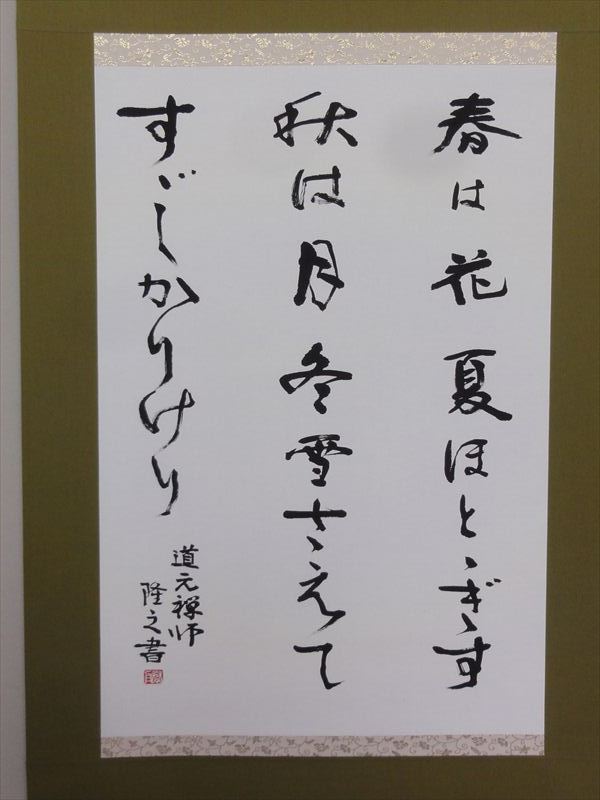 春は花夏ほとゝぎす
秋は月冬雪さえて
すゞしかりけり
道元禅師
隆之書